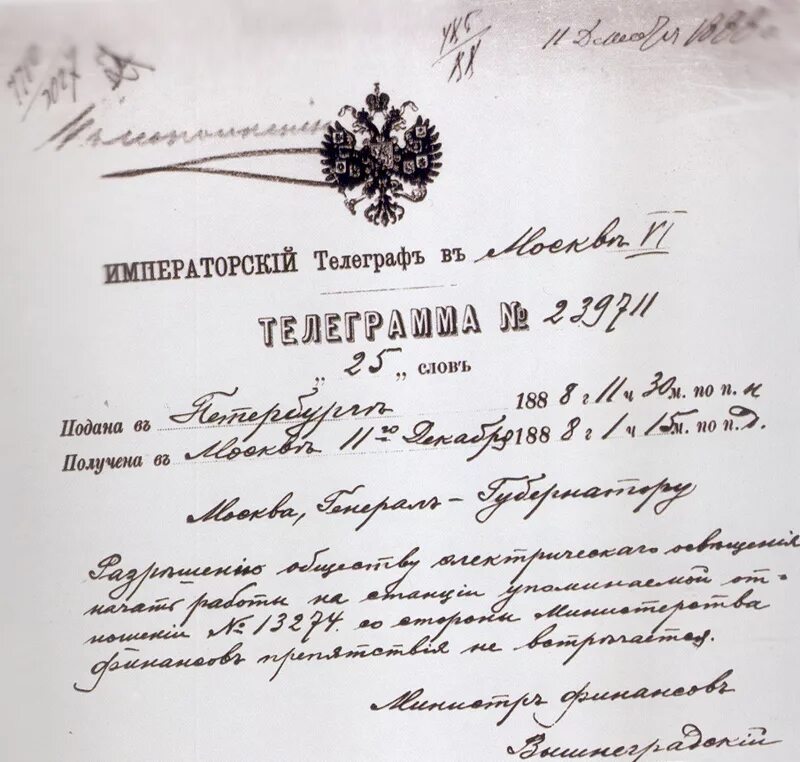 485/88
11 Декабря 1888 г.
Къ исполненію
ИМПЕРАТОРСКІЙ Телеграфъ въ Москвѣ VI
ТЕЛЕГРАММА № 239711
„ 25 „ словъ
Подана въ Петербургѣ 1888 г 11 ч 30 м. по п. н
Получена въ Москвѣ 11го Декабря 1888 г 1 ч 15 м. по п. д.
Москва, Генералъ-Губернатору
Разрѣшенію обществу электрическаго освѣщенія
начать работы на станціи упоминаемой от-
ношеніи № 13274. со стороны Министерства
финансовъ препятствія не встрѣчается.
Министръ финансовъ
Вышнеградскій